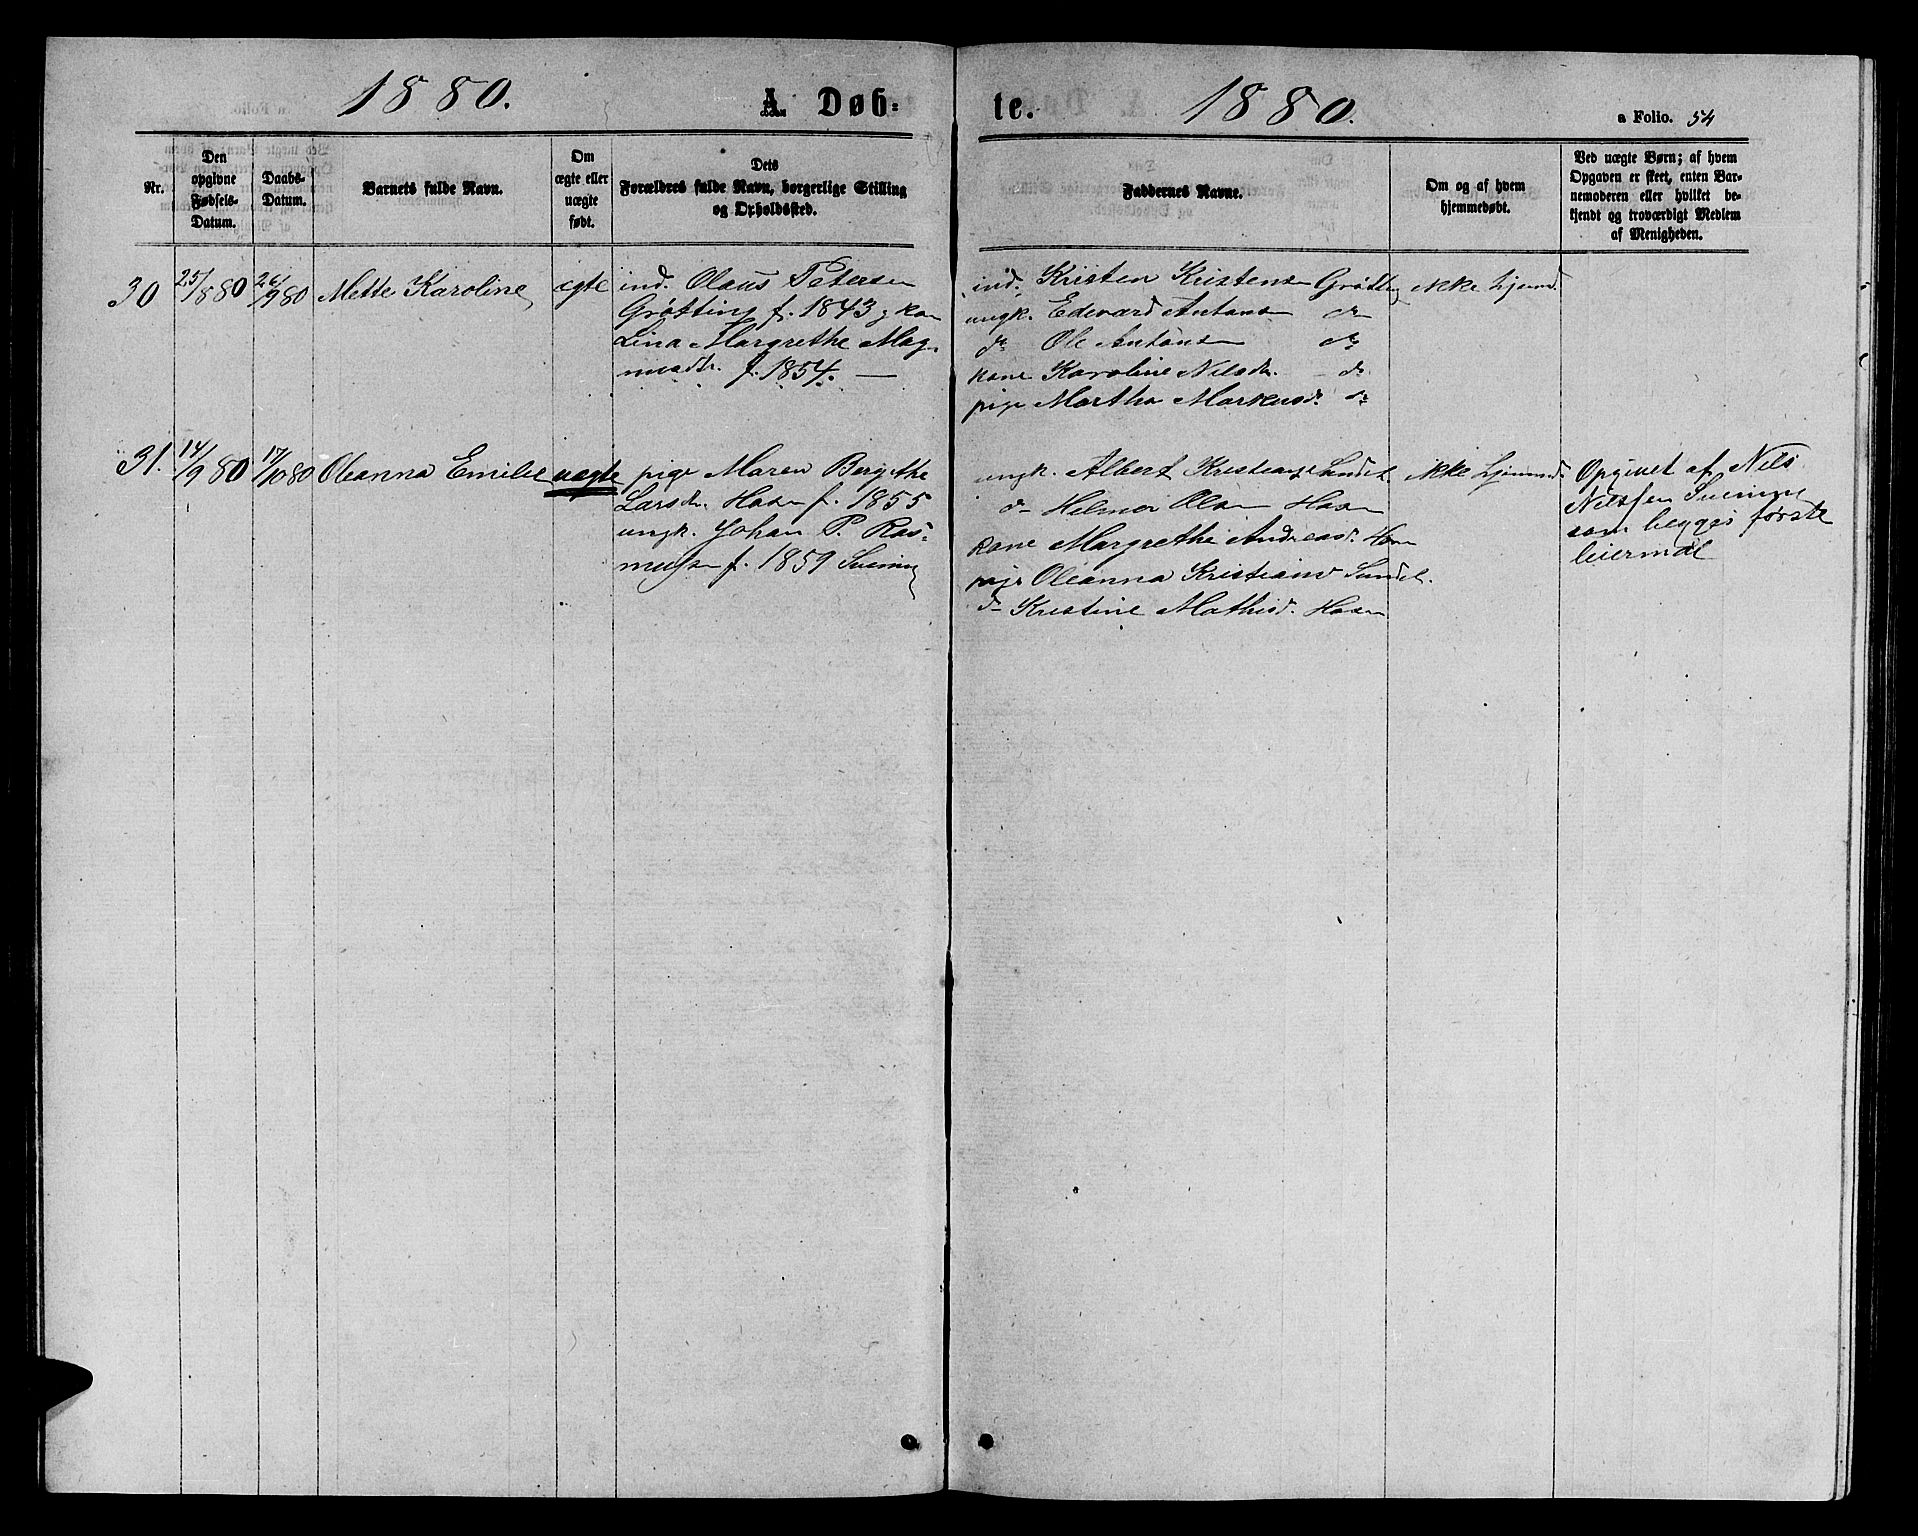 1880.
A. Døb-
te.
1880.
a Folio. 54
Nr.
Den
opgivne
Fødsels-
Datum.
Daabs-
Datum.
Barnets fulde Navn.
Om
ægte eller
uægte
født.
Dets
Forældres fulde Navn, borgerlige Stilling
og Opholdssted.
Faddernes Navne.
Om og af hvem
hjemmedøbt.
Ved uægte Børn; af hvem
Opgaven er skeet, enten Bar-
nemoderen eller hvilket be-
kjendt og troværdigt Medlem
af Menigheden.
30
25/8 80
26/9 80
Mette Karoline
ægte
ind. Olaus Petersen
Grøtting f. 1843 g kon
Lina Margrethe Mag-
nusdtr. f. 1854. —
ind. Kristen Kristensen Grøtting
ungk. Edevard Antonsen do
do Ole Antonsen do
kone Karoline Nilsdr. - do
pige Martha Markusd. do
ikke hjemd.
31.
14/9 80
17/10 80
Oleanna Emilie
uægte
pige Maren Bergithe
Larsdr. Hasen f. 1855
ungk. Johan P. Ras-
musen f. 1859
ungk. Albert Sundet
do Helmer Olsen Hasen
Kone Margrethe Andreasd. Hasen
pige Oleanna Kristiansd Sundet.
do Kristine Mathisd. Hasen
ikke hjemmd.
Opgivet af Nils
Nilssen
som begges første
leiermal